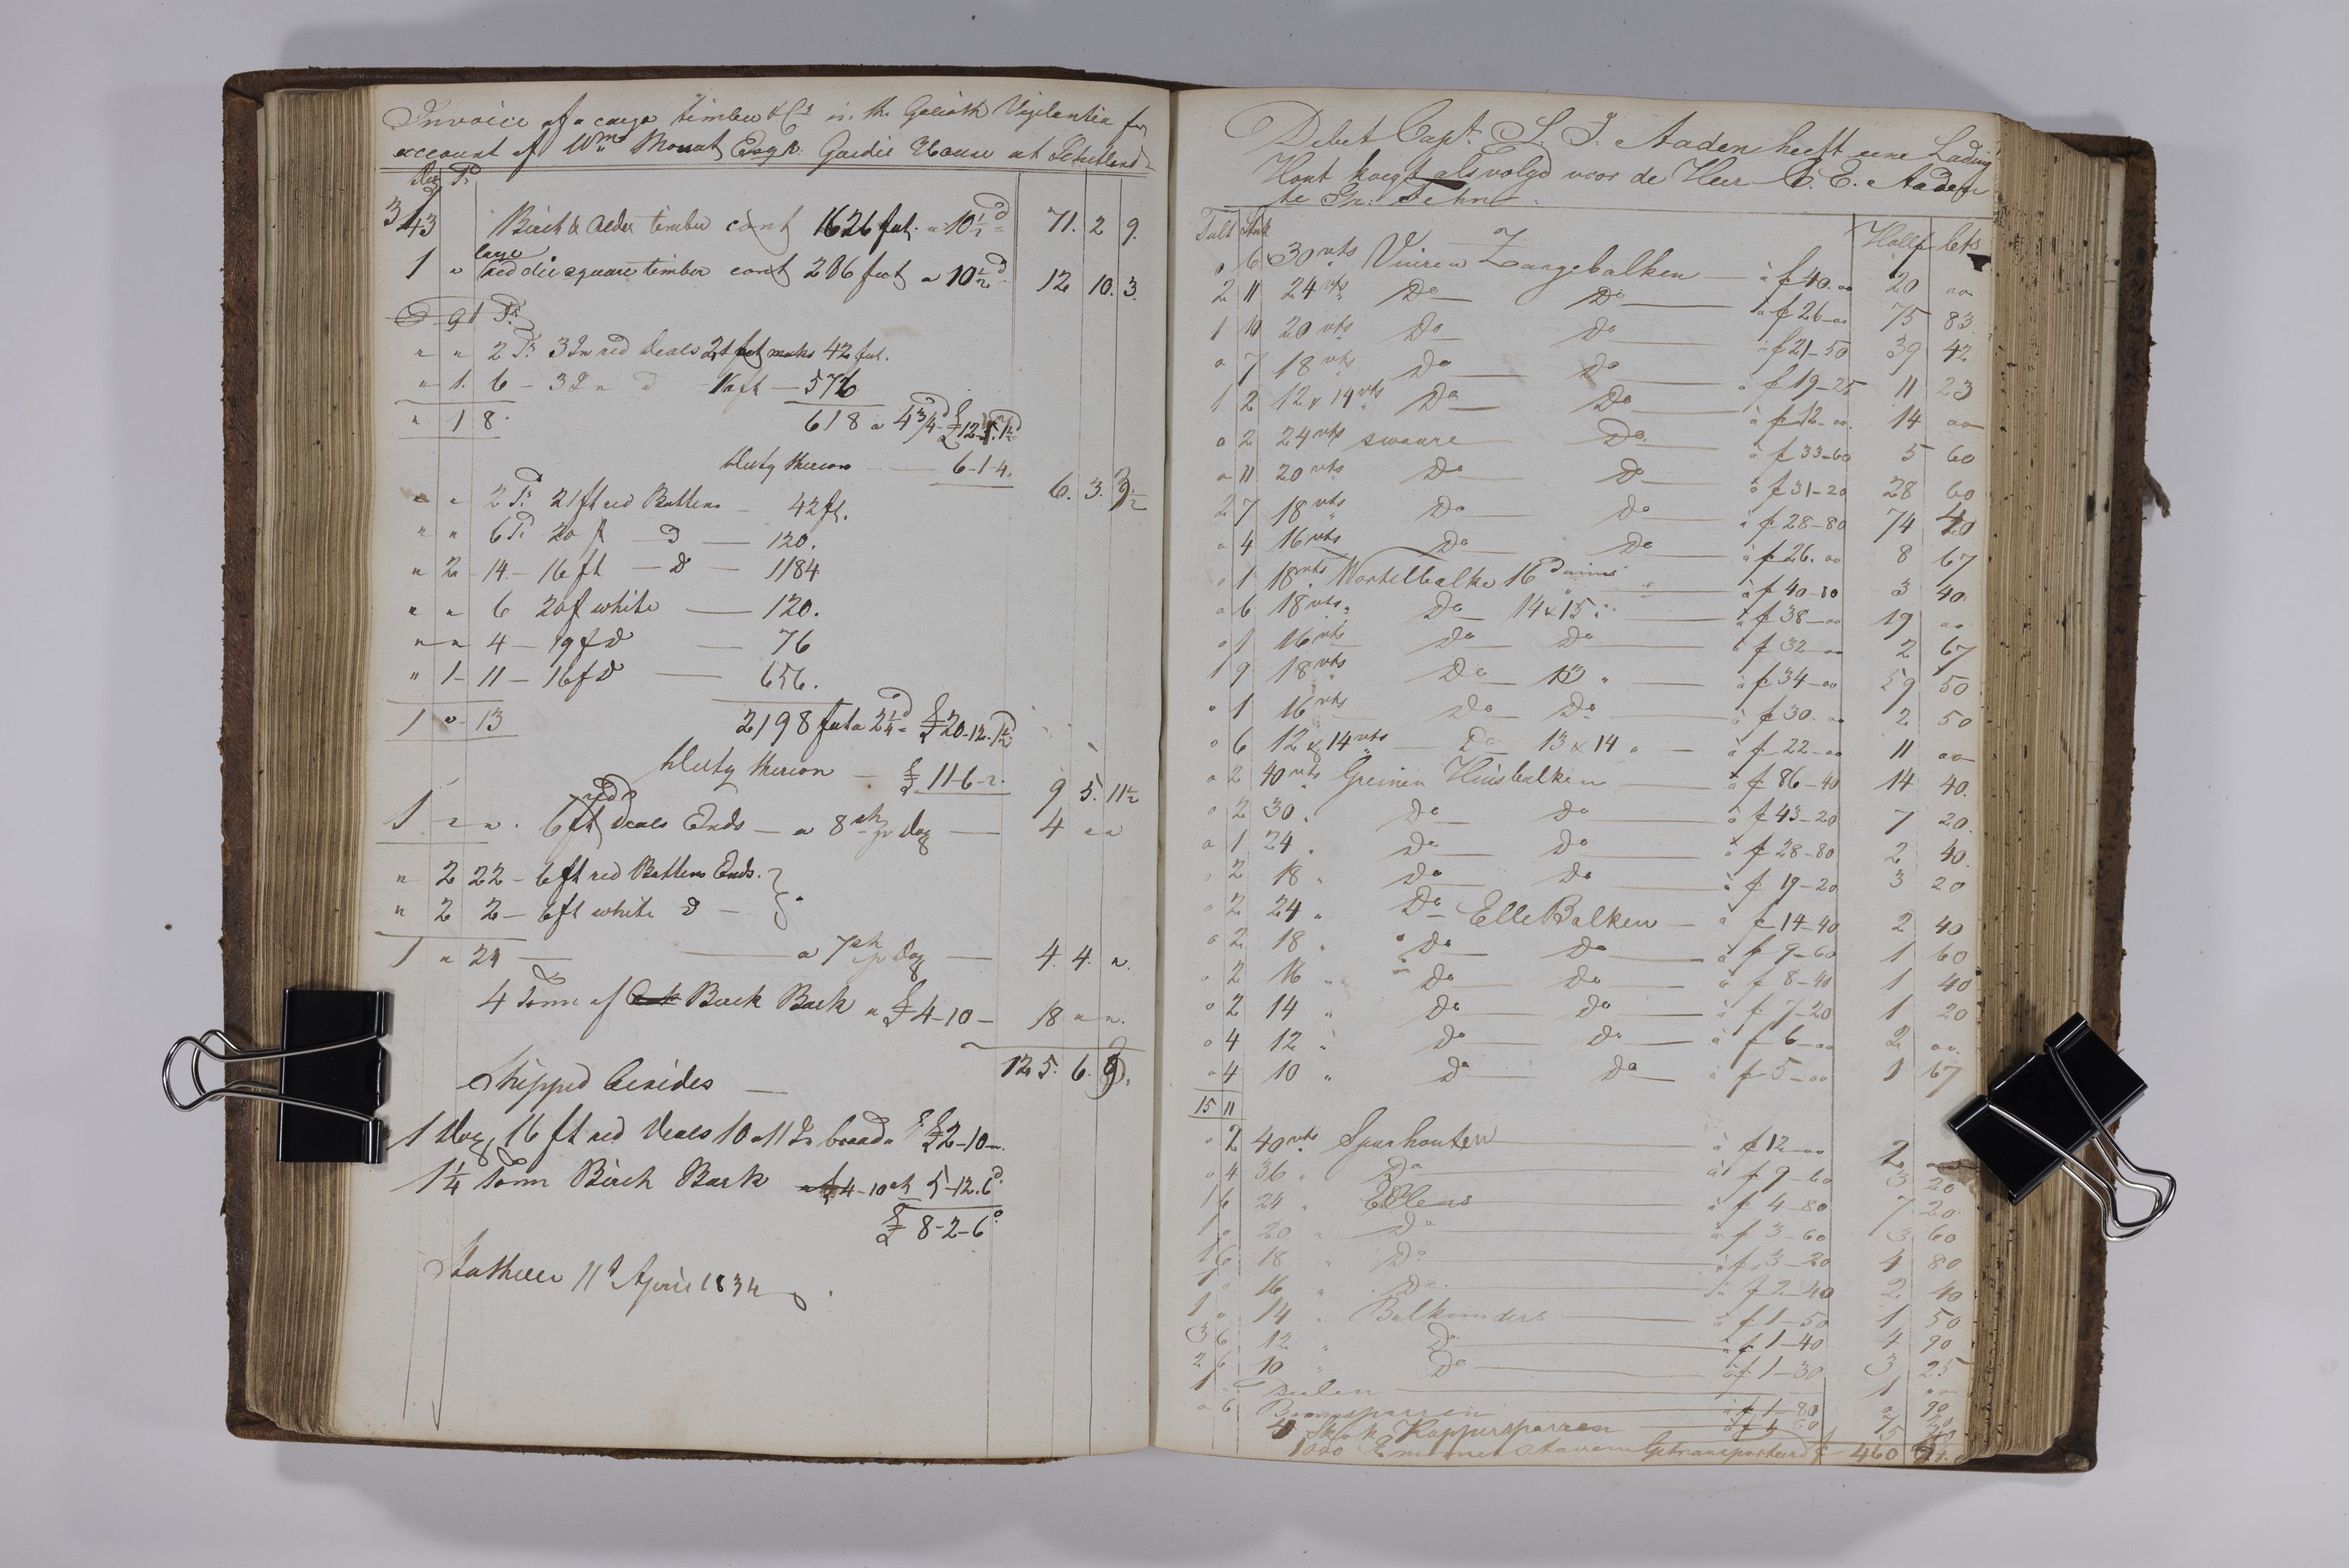 Invoice of a cargo timber &c in the Galioth Vigilentia for
account of Wm Mouat Esqr. Gardie House at Schetland
343 Birch & Alder timber cont 1626 feet. a 10½d 71. 2 9.
1 " large red die square timber cont 286 feet a 10½d 12 10. 3.
" " 2 Ps 3 In red deals 21 feet maks 42 feet.
" 1. 6 — 3 In " d 16 ft — 576
" 1 8. 618 a 4¾d £12.5.1½d
Duty thereon — 6-1-4. 6. 3. 9½
" " 2 Ps 21 ft red Battens — 42 ft.
" " 6 Ps 20 ft — d — 120.
" 2 - 14 - 16 ft — d — 1184
" " 6 20 f white — 120.
" " 4 — 19 f d — 76
" 1 - 11 — 16 f d — 656.
1 " 13 2198 feet a 2¼d £20-12-1½d
Duty thereon — £ 11-6-2. 9 5. 11½
1 " " . 6 ft red deals Ends — a 8 sh pr doz — 4 " "
" 2 22 — 6 ft red Battens Ends.
" 2 2 — 6 ft white d —
1 " 24 — a 7 sh pr doz — 4. 4. ".
4 Tonn of Birch Bark a £4-10 — 18 " ".
125. 6. 9.
Shipped besides —
1 doz 16 ft red deals 10 a 11 In broad a £2-10 "
1¼ Tonn Birch Bark a £4-10 sh 5-12.6d
£ 8-2-6d
11d April 1834
Debet Capt. S. J. Aaden heeft eene Lading
Hout koegt als volgd voor de Heer C. E. Aaden
te Gr. Fehn.
Tult Stuk Hollf Cts
" 6 30 vts Vuiren Zaagebalken — à f 40.00 20 00
2 11 24 vts Do Do — à f 26_00 75 83.
1 10 20 vts Do Do — à f 21-50 39 42
" 7 18 vts Do Do — à f 19-25 11 23
1 2 12 & 14 vts Do Do — à f 12-00. 14 00
" 2 24 vts swaare Do — à f 33-60 5 60
" 11 20 vts Do Do — à f 31-20 28 60
2 7 18 vts Do Do — à f 28-80 74 40
" 4 16 vts Do Do — à f 26.00 8 67
" 1 18 vts Wortelbalke 16 duims " à f 40-80 3 40.
" 6 18 vts. Do 14 & 15 " — à f 38_00 19 00
" 1 16 vts Do Do — à f 32_00 2 67
1 9 18 vts Do 13 " — à f 34_00 59 50
" 1 16 vts Do Do — à f 30.00 2 50
" 6 12 & 14 vts — Do 13 & 14 " — à f 22_00 11 00
" 2 40 vts Greinen Huisbalken — à f 86-40 14 40.
" 2 30 " Do Do — à f 43-20 7 20.
" 1 24 " Do Do — à f 28-80 2 40.
" 2 18 " Do Do — à f 19-20 3 20
" 2 24 " Do Elle Balken — à f 14-40 2 40
" 2 18 " Do Do — à f 9-60 1 60
" 2 16 " Do Do — à f 8-40 1 40
" 2 14 " Do Do — à f 7-20 1 20
" 4 12 " Do Do — à f 6_00 2 00.
" 4 10 " Do Do — à f 5_00 1 67
15 11
" 2 40 vts Sparhouten — à f 12_00 2 00
" 4 36 " Do — à f 9-60 3 20
1 6 24 " Ellens — à f 4-80 7 20.
1 " 20 " Do — à f 3-60 3 60
1 6 18 " Do — à f 3-20 4 80
1 " 16 " Do. — à f 2-40 2 40
1 " 14 " Balkenders — à f 1-50 1 50
3 6 12 " Do — à f 1-40 4 90
2 6 10 " Do — à f 1-30 3 25
1 " Deelen — 1 00
" 6 Boomsparren — à f 1-80 " 90
4 Schok Kappersparren 15 20
1000 Getransporteerd f 460